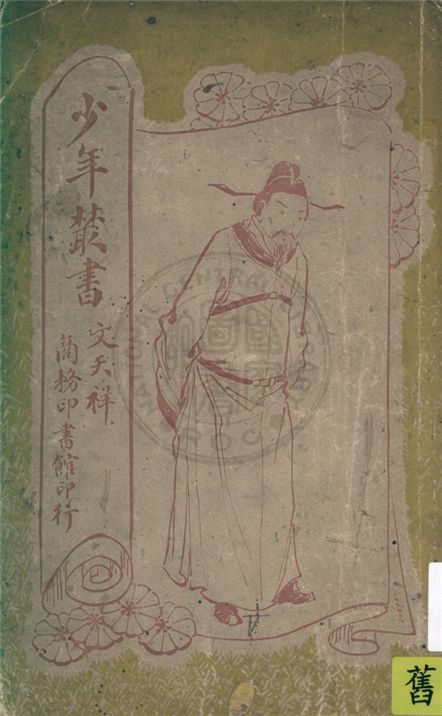 少年叢書
文天祥
商務印書館印行
舊